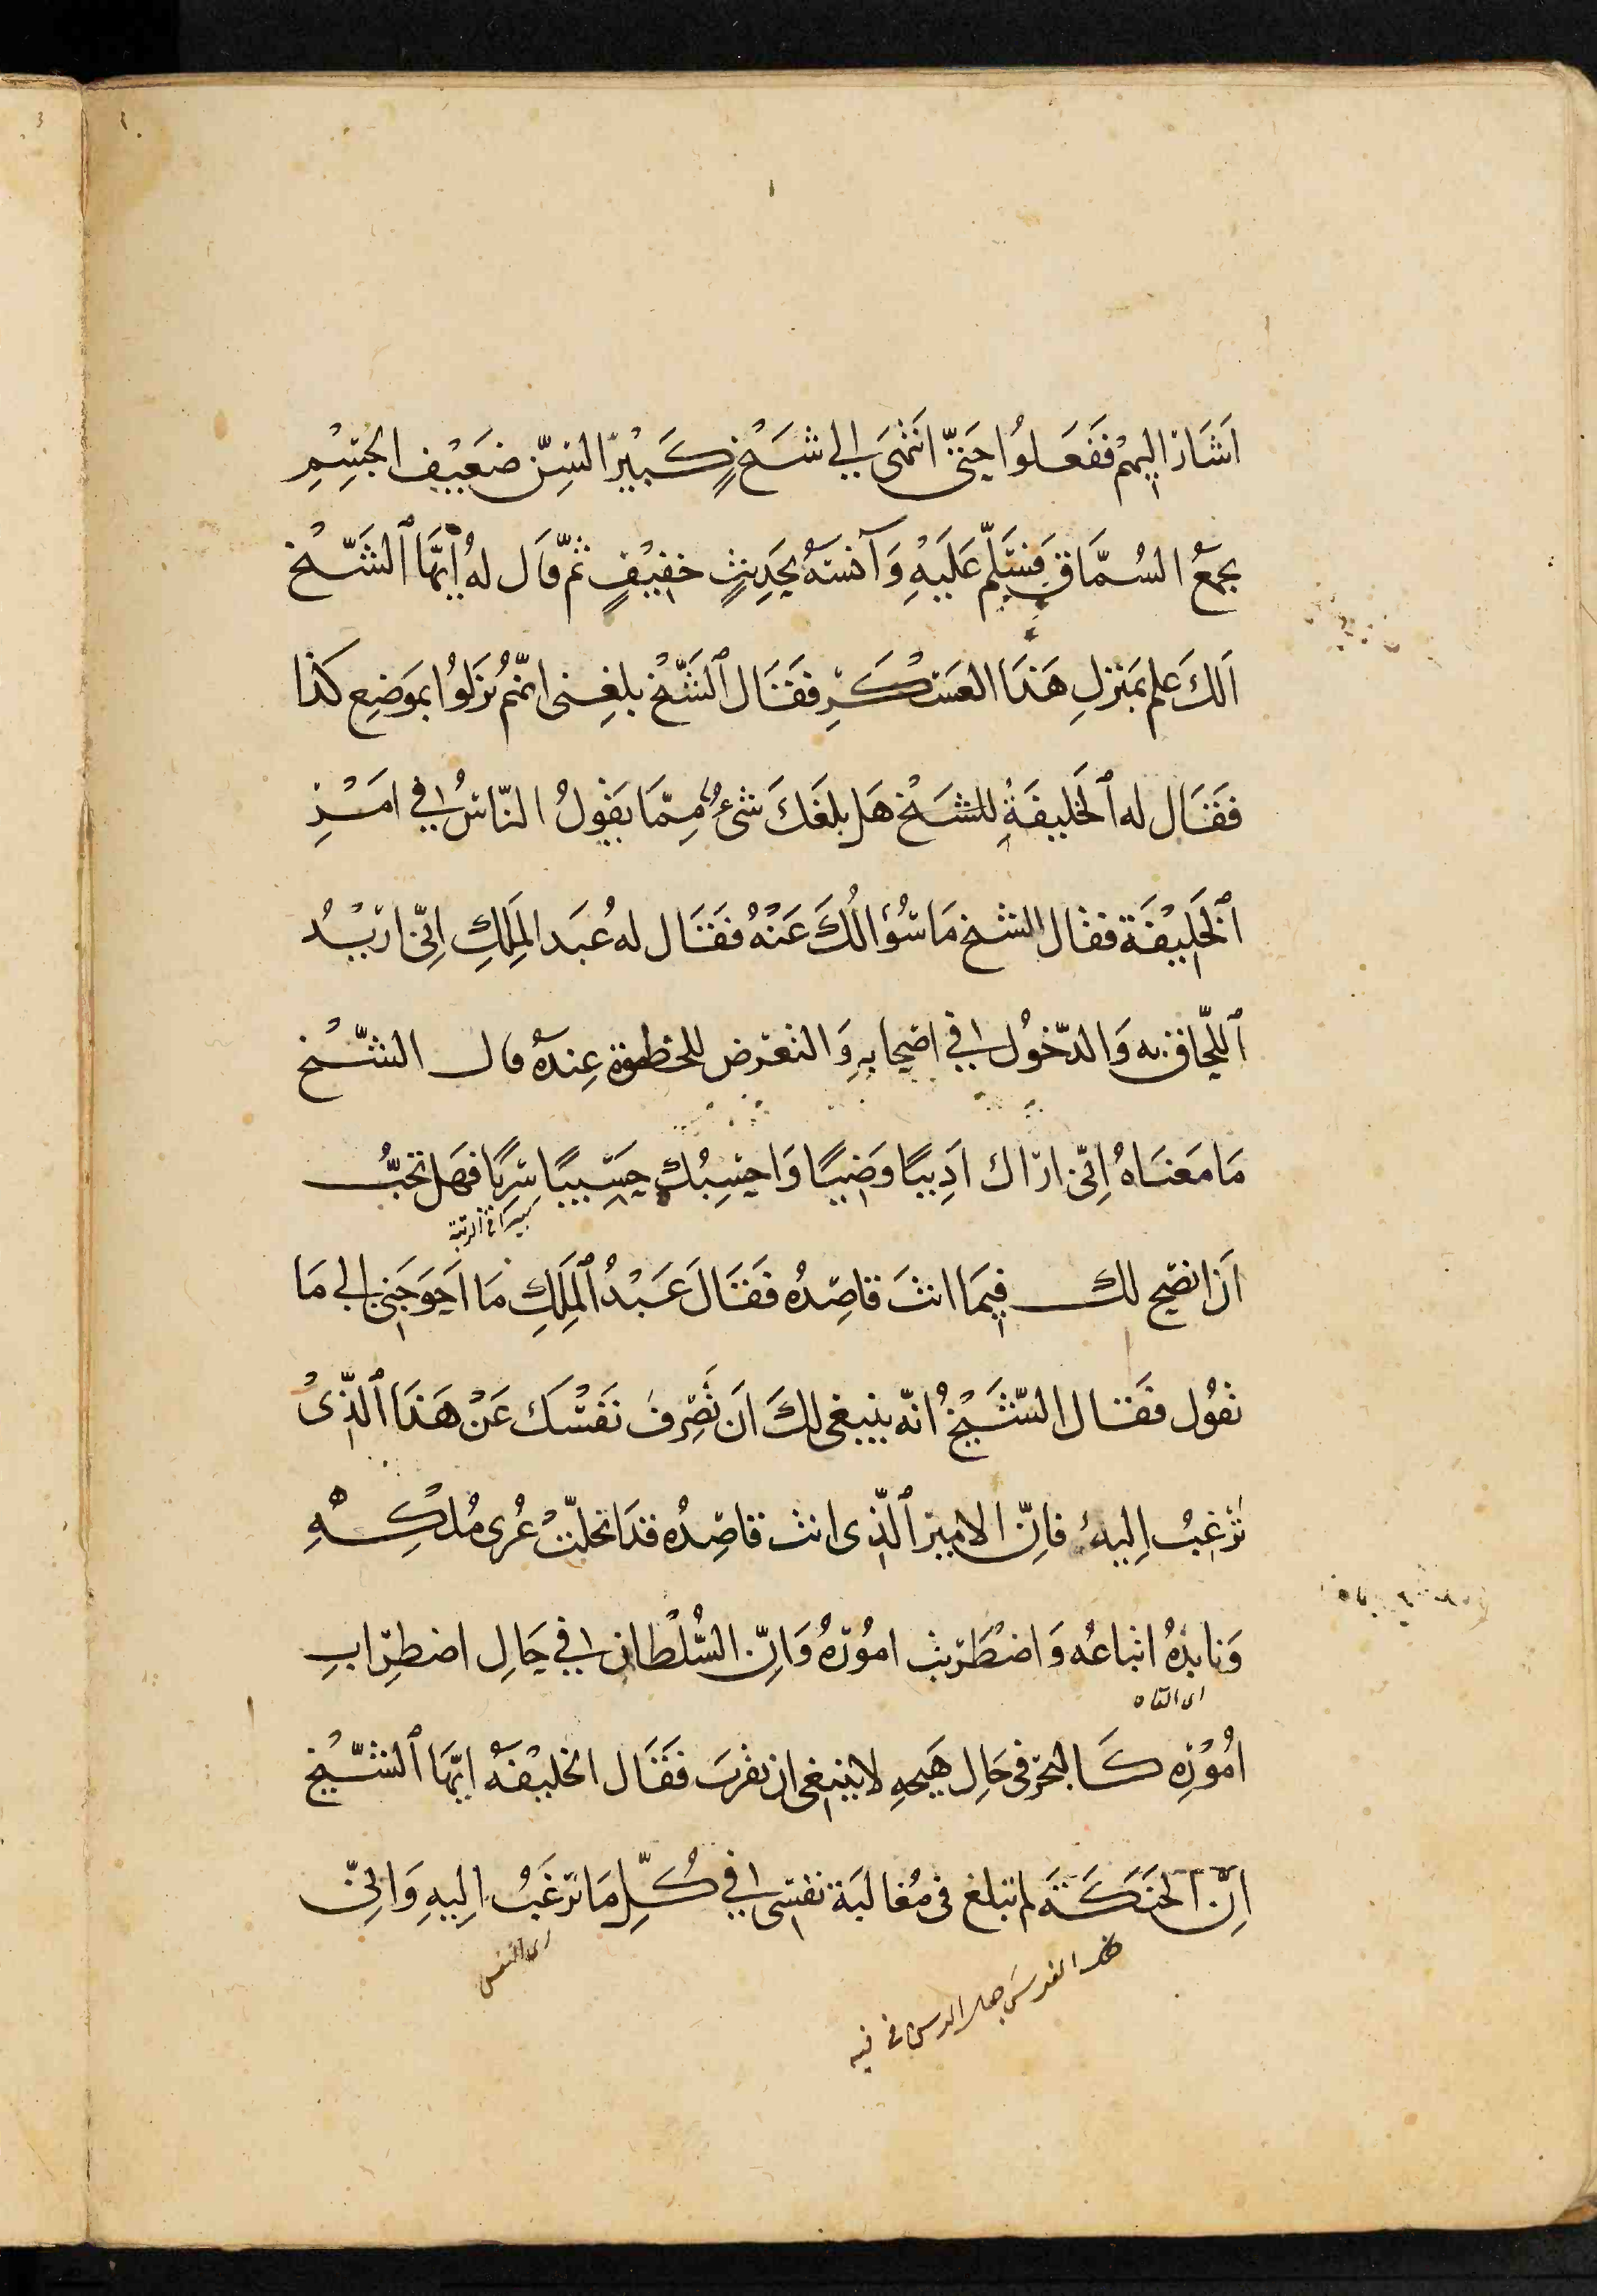 اَشَارَ اِليهِمْ فَفَعَلُوا حَتّى انتَهَى اِلي شَيْخٍ كَبيْرِ السِنّ ضَعيْفِ الجِسْمِ
يجمعُ السُمَّاق فَسَلّم عَلَيْهِ وَآنسَهُ بحَدِيثٍ خفيْفٍ ثمّ قَال لهُ اَيُّهَا ٱلشَيّخُ
اَلكَ علم بمَنزلِ هَذَا العَسْكَرِ فَقَال ٱلشَيّخُ بلغِنى انهّم نزَلُوا بمَوضِع كذا
فَقَال له ٱلخَليفَةِ للشيَخْ هَل بلغَكَ شَىْءٌ مِمّا يَقولُ النّاسُ في امْرِ
ٱلخَلِيْفَة فقال الشيخ مَا سُؤالُكَ عَنْهُ فَقَال لهُ عُبَد المَلِكِ اِنّى ارِيْدُ
ٱللّحَاق به وَالدّخُول في اصْحابهِ وَالتعرّض للحظوة عِندهُ قال الشَيّخ
مَا مَعْنَاهُ اِنّى ارَاك ادِيبًا وَضِيًا وَاحسِبُك حَسِيبًا سَرِيًا فهَل تحبُّ
سيدا في الرتبة
اَن انصَح لك فِيمَا انتَ قاصِدُه فَقَالَ عَبْدُ ٱلمَلِكِ مَا اَحوَجَنِى اِلي مَا
تقوُل فَقَال الشَيْخُ انّه ينبغى لكَ اَن تَصْرِفَ نَفْسَك عَنْ هَذَا ٱلذّىْ
تَرْغَبُ اِليهِ فاِنّ الاميرَ ٱلذّى انت قاصِدُه قد اَنحلّتْ عُرَى مُلْكِهِ
وَنابذهُ اتباعُه وَاضْطَرَبتْ امُورُهُ وَاِنّ السُّلْطان في حَالِ اضطِرابِ
اى القاه
امُوْرِه كَالبَحْرِ فى حَالِ هَيجهِ لا ينبغى ان يقرَب فَقَال الخليْفهُ ايّهَا ٱلشَيّخ
اِنّ الحَنَكَة لم تبلغ فى مُغالبَة نفسى في كُلِّ مَا ترغَبُ اِليهِ وَاِنّى
اى النفس